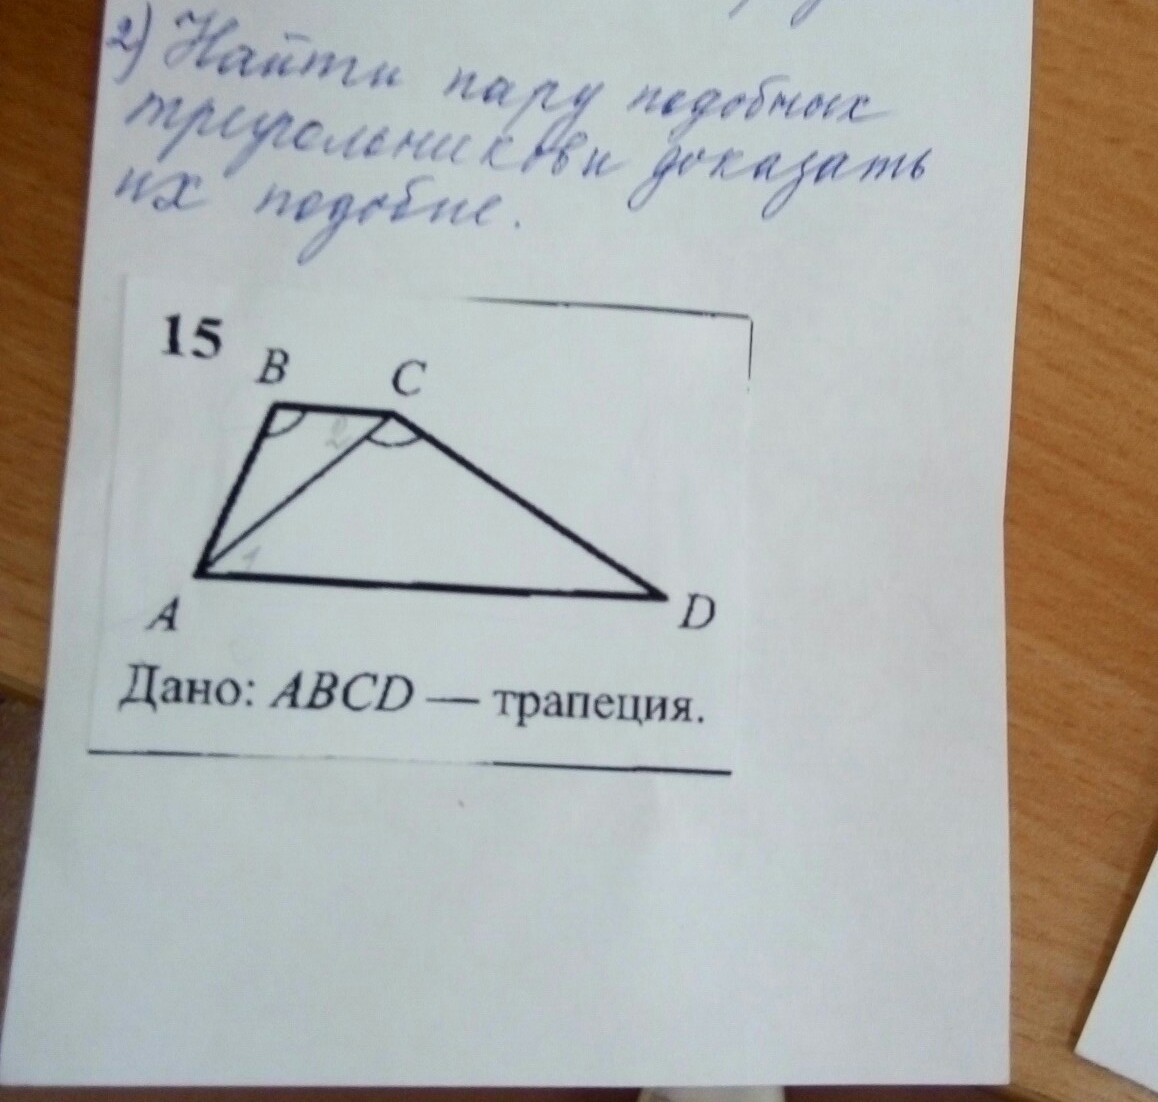 2) Найти пару подобных
треугольников и доказать
их подобие.
15
B C
2
1
A D
Дано: ABCD — трапеция.